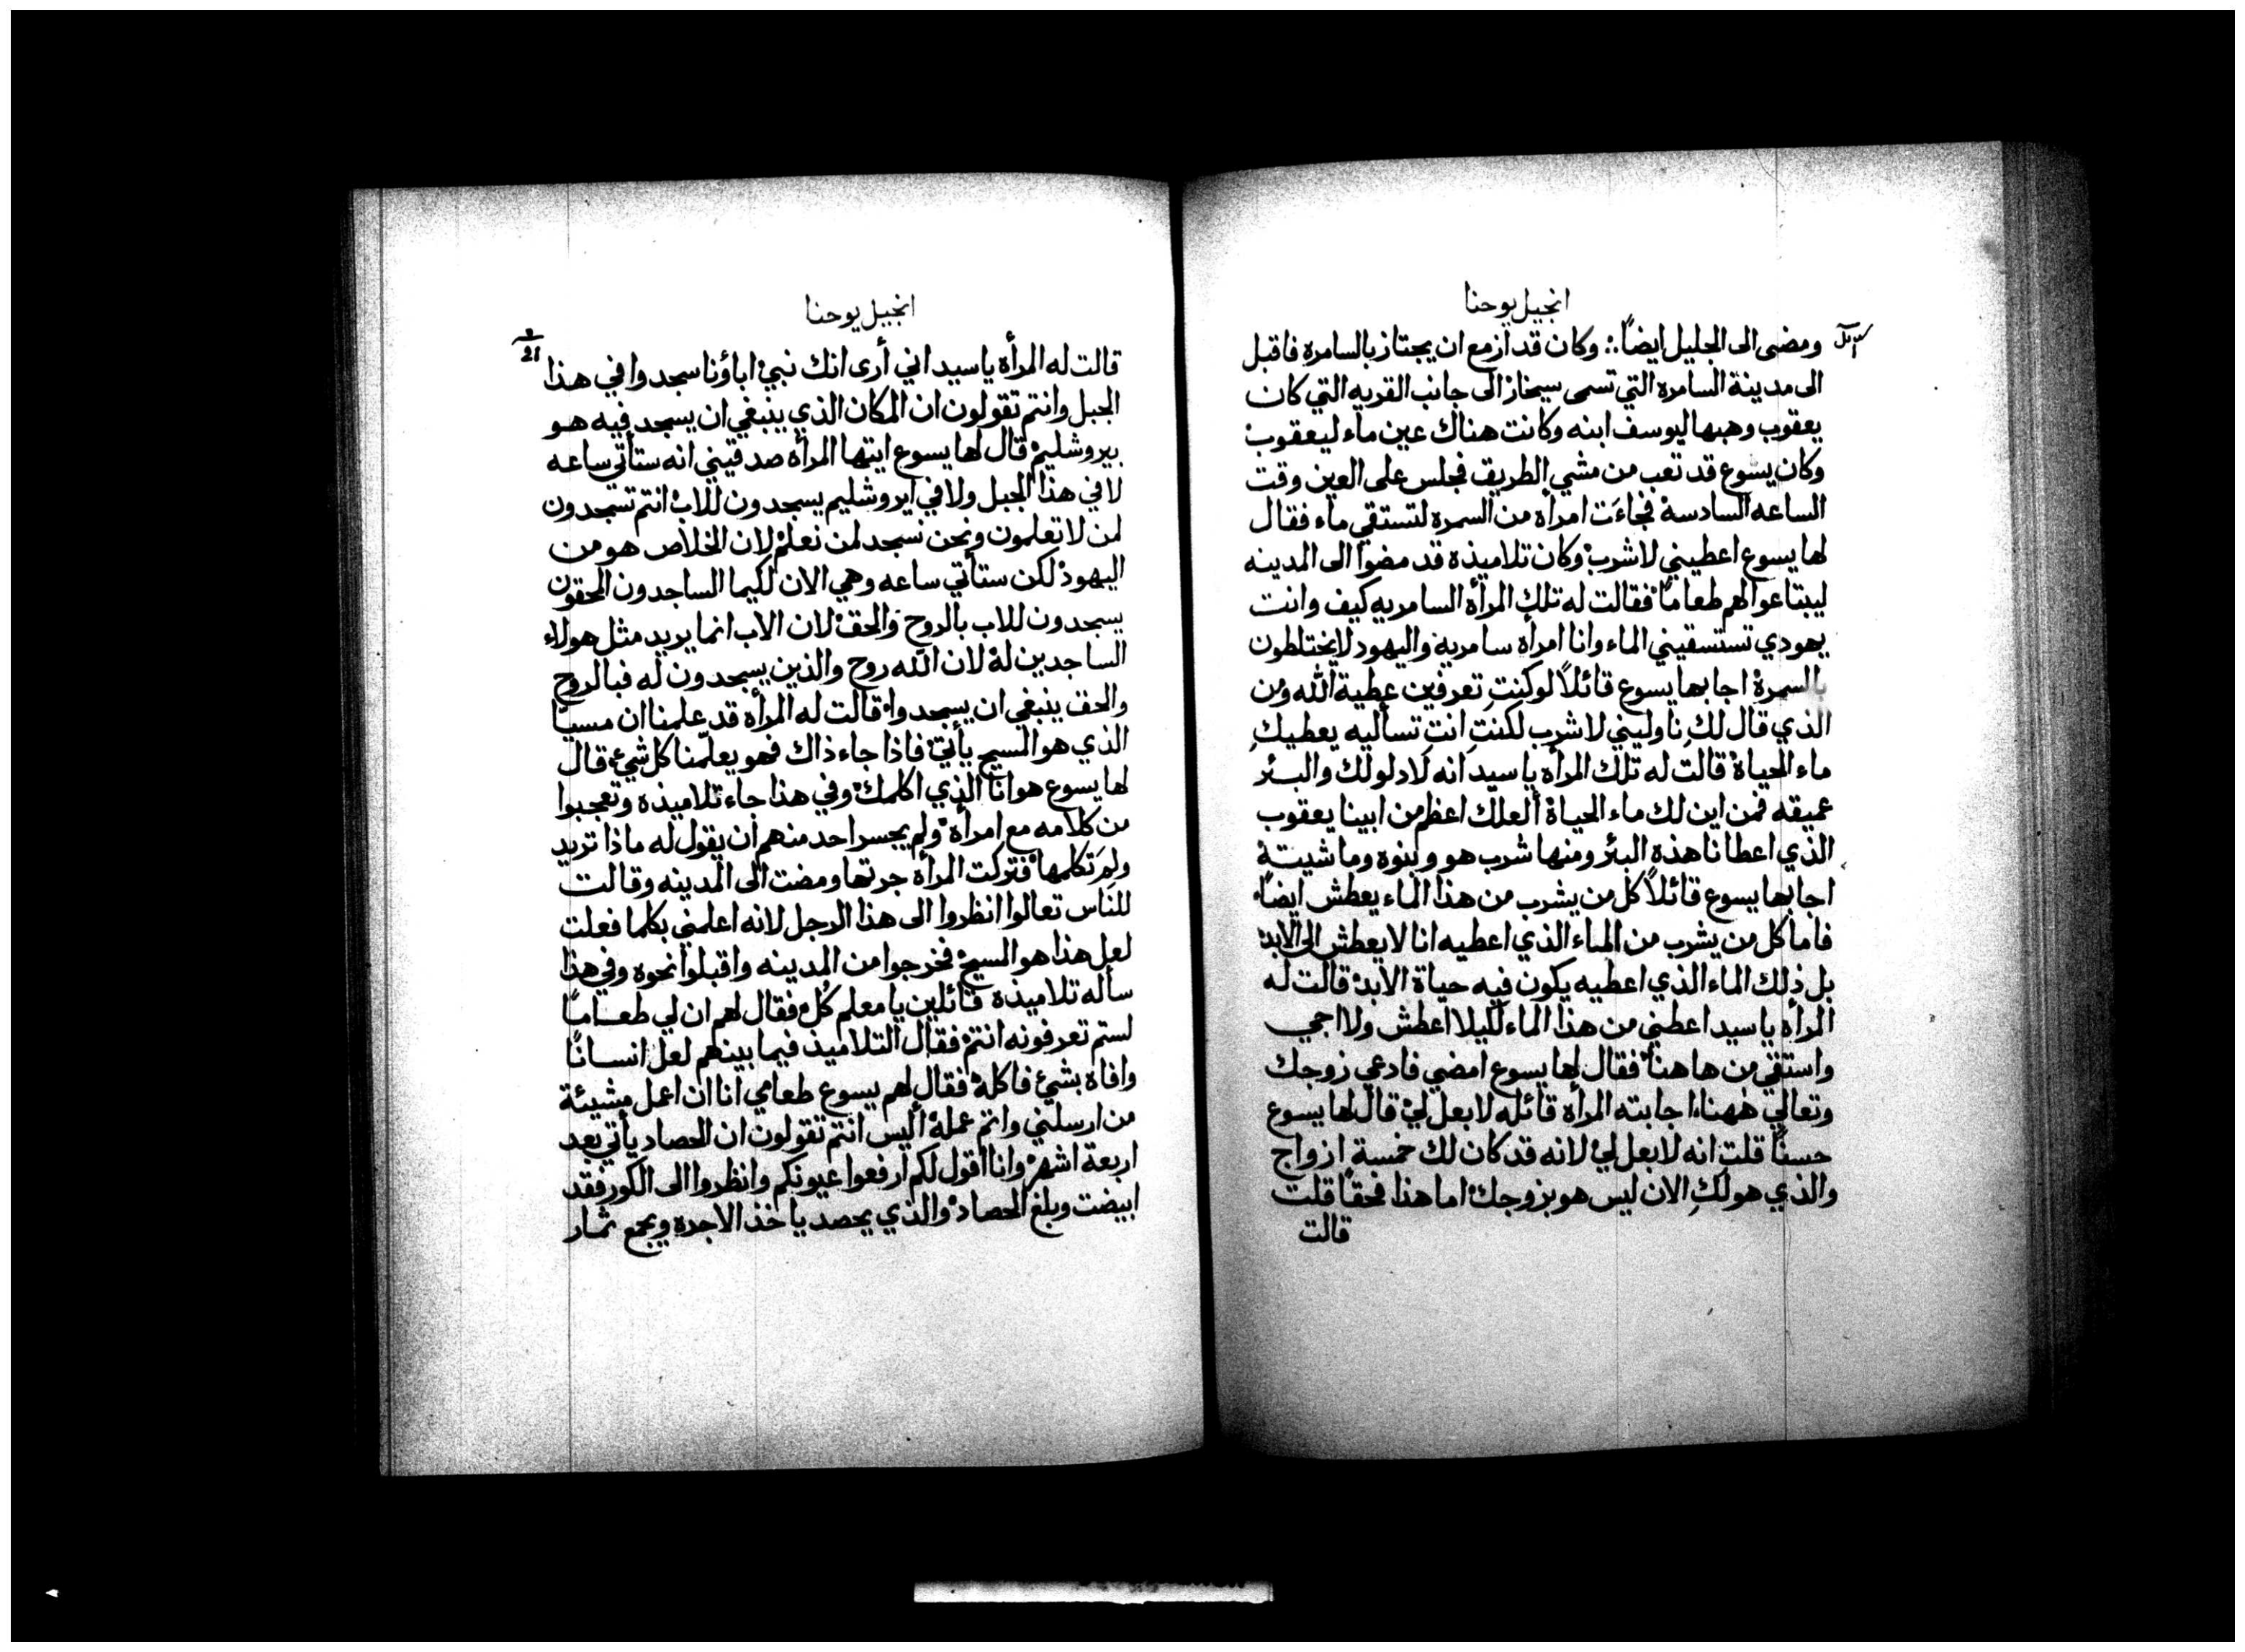 انجيل يوحنا
ومضى الى الجليل ايضاً ؞ وكان قد ازمع ان يجتاز بالسامره فاقبل
الى مدينة السامره التي تسمى سيخار الى جانب القريه التي كان
يعقوب وهبها ليوسف ابنه وكانت هناك عين ماء ليعقوب
وكان يسوع قد تعب من مشي الطريق فجلس على العين وقت
الساعه السادسة فجاءَت امرأه من السمره لتستقي ماء فقال
لها يسوع اعطيني لاشرب وكان تلاميذه قد مضوا الى المدينه
ليبتاعوا لهم طعاماً فقالت له تلك المرأه السامريه كيف وانت
يهودي تستسقيني الماء وانا امرأه سامرية واليهود لايختلطون
بالسمرة اجابها يسوع قائلاً لو كنتِ تعرفين عطية الله ومن
الذي قال لكِ ناوليني لاشرب لكنتِ انتِ تسأليه يعطيكِ
ماء الحياة قالت له تلك المرأه ياسيد انه لادلو لك والبئر
عميقه فمن اين لك ماء الحياة ألعلك اعظم من ابينا يعقوب
الذي اعطانا هذه البئر ومنها شرب هو وبنوه وماشيتة
اجابها يسوع قائلاً كل من يشرب من هذا الماء يعطش ايضاً
فاما كل من يشرب من الماء الذي اعطيه انا لايعطش الى الابد
بل ذلك الماء الذي اعطيه يكون فيه حياة الابد قالت له
المرأه ياسيد اعطني من هذا الماء لكيلا اعطش ولا اجي
واستقي من هاهنا فقال لها يسوع امضي فادعي زوجك
وتعالي ههنا اجابته المرأه قائله لابعل لي قال لها يسوع
حسناً قلتِ انه لابعل لي لانه قد كان لك خمسة ازواج
والذي هو لكِ الان ليس هو بزوجك اما هذا فحقاً قلت
قالت
انجيل يوحنا
21
قالت له المرأه ياسيد اني أرى انك نبي اباؤنا سجدوا في هذا
الجبل وانتم تقولون ان المكان الذي ينبغي ان يسجد فيه هو
بيروشليم قال لها يسوع ايتها المرأه صدقيني انه ستأتي ساعه
لا في هذا الجبل ولا في ايروشليم يسجدون للاب انتم تسجدون
لمن لاتعلمون ونحن نسجد لمن نعلم لان الخلاص هو من
اليهود لكن ستأتي ساعه وهي الان لكيما الساجدون المحقون
يسجدون للاب بالروح والحق لان الاب انما يريد مثل هولاء
الساجدين له لان الله روح والذين يسجدون له فبالروح
والحق ينبغي ان يسجدوا قالت له المرأه قد علمنا ان مسيا
الذي هو المسيح يأتي فاذا جاء ذاك فهو يعلّمنا كل شيء قال
لها يسوع هو انا الذي اكلمك وفي هذا جاء تلاميذه وتعجبوا
من كلامه مع امرأه ولم يجسر احد منهم ان يقول له ماذا تريد
ولِمَ تكلمها فتركت المرأه جرتها ومضت الى المدينه وقالت
للناس تعالوا انظروا الى هذا الرجل لانه اعلمني بكلما فعلت
لعل هذا هو المسيح فخرجوا من المدينه واقبلوا نحوه وفي هذا
سأله تلاميذه قائلين يامعلم كُل فقال لهم ان لي طعاماً
لستم تعرفونه انتم فقال التلاميذ فيما بينهم لعل انساناً
وافاه بشئ فاكله فقال لهم يسوع طعامي انا ان اعمل مشيئة
من ارسلني واتم عمله أليس انتم تقولون ان الحصاد يأتي بعد
اربعة اشهر وانا اقول لكم ارفعوا عيونكم وانظروا الى الكور فقد
ابيضت وبلغ الحصاد والذي يحصد ياخذ الاجره ويجمع ثمار